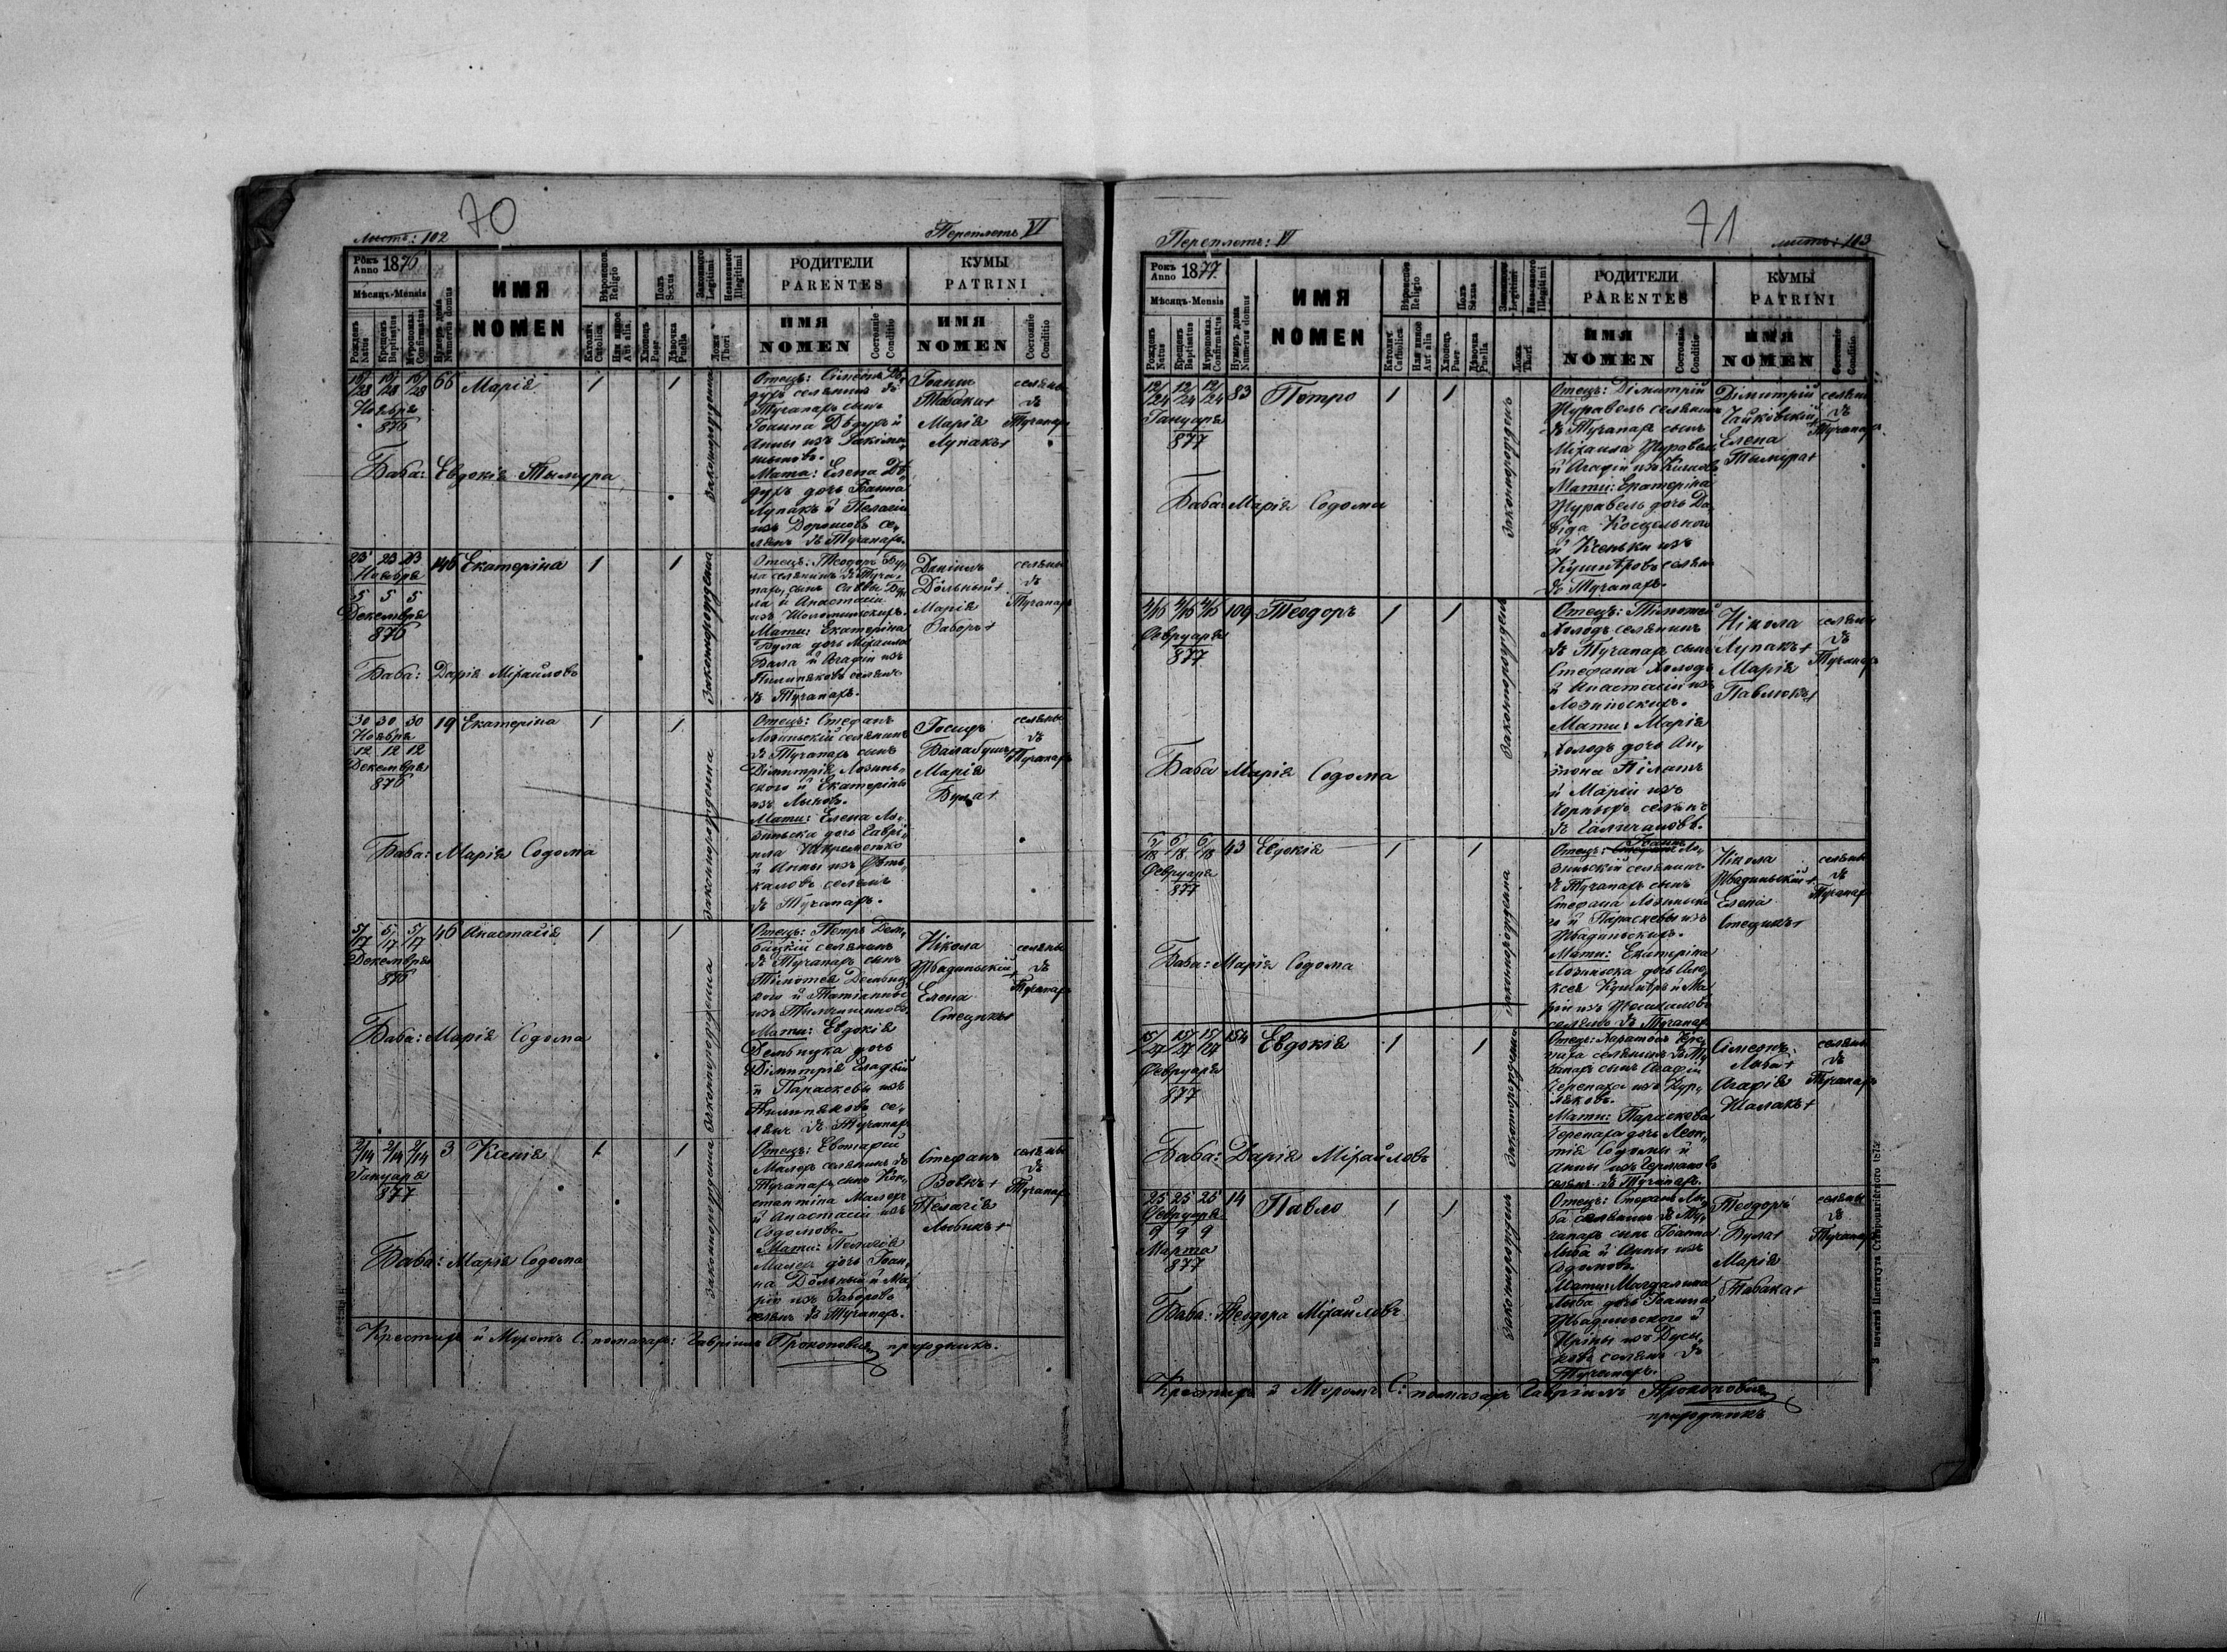 70
Листъ: 102
Переплетъ VI
Рôкъ Anno 1876
Мѣсяцъ-Mensis
Рожденъ Natus
Крещенъ Baptisatus
Мѵропомаз. Confirmatus
Нумеръ дома Numerus domus
ИМЯ
NOMEN
Вѣроиспов. Religio
Католич. Catholica
Или инное Aut alia
Полъ Sexus
Хлопецъ Puer
Дѣвочка Puella
Законного Legitimi
Незаконного Illegitimi
Ложа Thori
РОДИТЕЛИ
PARENTES
ИМЯ
NOMEN
Состояніе Conditio
КУМЫ
PATRINI
ИМЯ
NOMEN
Состояніе Conditio
16/28 16/28 16/28
Ноября
876
66
Марія
1
1
Законнорожденна
Отецъ: Сімеонъ Дѣ-
духъ селянинъ въ
Тучапахъ сынъ
Іоанна Дѣдухъ и
Анны изъ
Мати: Елена Дѣ-
духъ дочь Іоанна
Лупакъ и Пелагіи
изъ Дорошовъ се-
лянъ въ Тучапахъ.
Іоаннъ
Табака+
Марія
Лупакъ+
селяне
въ
Тучапахъ
Баба: Евдокія Тымура
23 23 23
Ноября
5 5 5
Декемврія
876
146
Екатеріна
1
1
Законнорожденна
Отецъ: Теодоръ Бу-
ла селянинъ въ Туча-
пахъ, сынъ Саввы Бу-
ла и Анастасіи
Мати: Екатеріна
Була дочь Міхаила
Била и Агафіи изъ
Пилипяковъ селянъ
въ Тучапахъ.
Даніилъ
Дôльный+
Марія
Заборъ+
селяне
въ
Тучапахъ
Баба: Дарія Міхайловъ
30 30 30
Ноября
12 12 12
Декемврія
876
19
Екатеріна
1
1
Законнорожденна
Отецъ: Стефанъ
Лозиньскій селянинъ
въ Тучапахъ сынъ
Дімитрія Лозинь-
ского и Екатеріны
изъ Лыковъ.
Мати: Елена Ло-
зиньска дочь Гаврі-
ила
и Анны изъ Фѣть-
каловъ селянъ
въ Тучапахъ.
Іосифъ
Балабушъ+
Марія
Була+
селяне
въ
Тучапахъ
Баба: Марія Содома
5/17 5/17 5/17
Декемврія
876
46
Анастасія
1
1
Законнорожденна
Отецъ: Петръ Дем-
бицкій селянинъ
въ Тучапахъ сынъ
Тімотея Дембиц-
кого и Татіанны
изъ
Мати: Евдокія
Дембицка дочь
Дімитрія Гладкій
и Параскевы изъ
Пилипяковъ се-
лянъ въ Тучапахъ
Нікола
Жвадиньскій+
Елена
Стецикъ+
селяне
въ
Тучапахъ
Баба: Марія Содома
2/14 2/14 2/14
Януарія
877
3
Ксенія
1
1
Законнорожденна
Отецъ: Евстафій
Малеръ селянинъ въ
Тучапахъ, сынъ Кон-
стантіна Малеръ
и Анастасіи изъ
Содомовъ.
Мати: Пелагія
Малеръ дочь Іоан-
на Дôльный и Ма-
ріи изъ Заборовъ
селянъ въ Тучапахъ.
Стефанъ
Вовкъ+
Пелагія
селяне
въ
Тучапахъ
Баба: Марія Содома
Крестихъ и Мѵромъ С: помазахъ: Гавріилъ Прокоповичъ приходникъ.
71
Переплетъ: VI
листъ: 103
Рокъ Anno 1877
Мѣсяцъ-Mensis
Рожденъ Natus
Крещенъ Baptisatus
Мѵропомаз. Confirmatus
Нумеръ дома Numerus domus
ИМЯ
NOMEN
Вѣроиспов Religio
Католич Catholica
Или инное Aut alia
Полъ Sexus
Хлопецъ Puer
Дѣвочка Puella
Законного Legitimi
Незаконного Illegitimi
Ложа Thori
РОДИТЕЛИ
PARENTES
ИМЯ
NOMEN
Состояніе Conditio
КУМЫ
PATRINI
ИМЯ
NOMEN
Состояніе Conditio
12/24 12/24 12/24
Януарія
877
83
Петро
1
1
Законнорожденъ
Отецъ: Дімитрій
Журавель селянинъ
въ Тучапахъ сынъ
Міхаила Журавель
и Агафіи изъ
Мати: Екатеріна
Журавель дочь Да-
віда
и Ксеньки изъ
Кушнѣровъ селянъ
въ Тучапахъ.
Дімитрій
Чайкôвскій+
Елена
Тымура+
селяне
въ
Тучапахъ
Баба: Марія Содома
4/16 4/16 4/16
Февруарія
877
109
Теодоръ
1
1
Законнорожденъ
Отецъ: Тімотей
Холодъ селянинъ
въ Тучапахъ сынъ
Стефана Холодъ
и Анастасіи изъ
Лозиньскихъ.
Мати: Марія
Холодъ дочь Ан-
тона Пілатъ
и Маріи изъ
селянъ
въ Галичановѣ.
Нікола
Лупакъ+
Марія
Павлюкъ+
селяне
въ
Тучапахъ
Баба Марія Содома
6/18 6/18 6/18
Февруарія
877
43
Евдокія
1
1
Законнорожденна
Іоаннъ
Отецъ: Стефанъ Ло-
зиньскій селянинъ
въ Тучапахъ сынъ
Стефана Лозиньско-
го и Параскевы изъ
Жвадиньскихъ.
Мати: Екатеріна
Лозиньска дочь Але-
ксея Кушнѣръ и Ма-
ріи изъ
селянъ въ Тучапахъ
Нікола
Жвадиньскій+
Елена
Стецикъ+
селяне
въ
Тучапахъ
Баба: Марія Содома
15/27 15/27 15/27
Февруарія
877
154
Евдокія
1
1
Законнорожденна
Отецъ: Харитонъ Чере-
паха селянинъ въ Ту-
чапахъ сынъ Агафіи
Черепаха изъ Кур-
ляковъ.
Мати: Параскева
Черепаха дочь Леон-
тія Содомы и
Анны изъ Германовъ
селянъ въ Тучапахъ.
Сімеонъ
Лыба+
Агафія
Шалакъ+
селяне
въ
Тучапахъ
Баба: Дарія Міхайловъ
25 25 25
Февруарія
9 9 9
Марта
877
14
Павло
1
1
Законнорожденъ
Отецъ: Стефанъ Лы-
ба селянинъ въ Ту-
чапахъ сынъ Іоанна
Лыба и Анны изъ
Содомовъ.
Мати: Магдалина
Лыба дочь Іоанна
Жвадиньского и
Ирины изъ
селянъ въ
Тучапахъ.
Теодоръ
Була+
Марія
Табака+
селяне
въ
Тучапахъ
Баба: Теодора Міхайловъ
Крестихъ и Мѵромъ С: помазахъ Гавріилъ Прокоповичъ
приходникъ
З печатнѣ Института Ставропигійского 1875